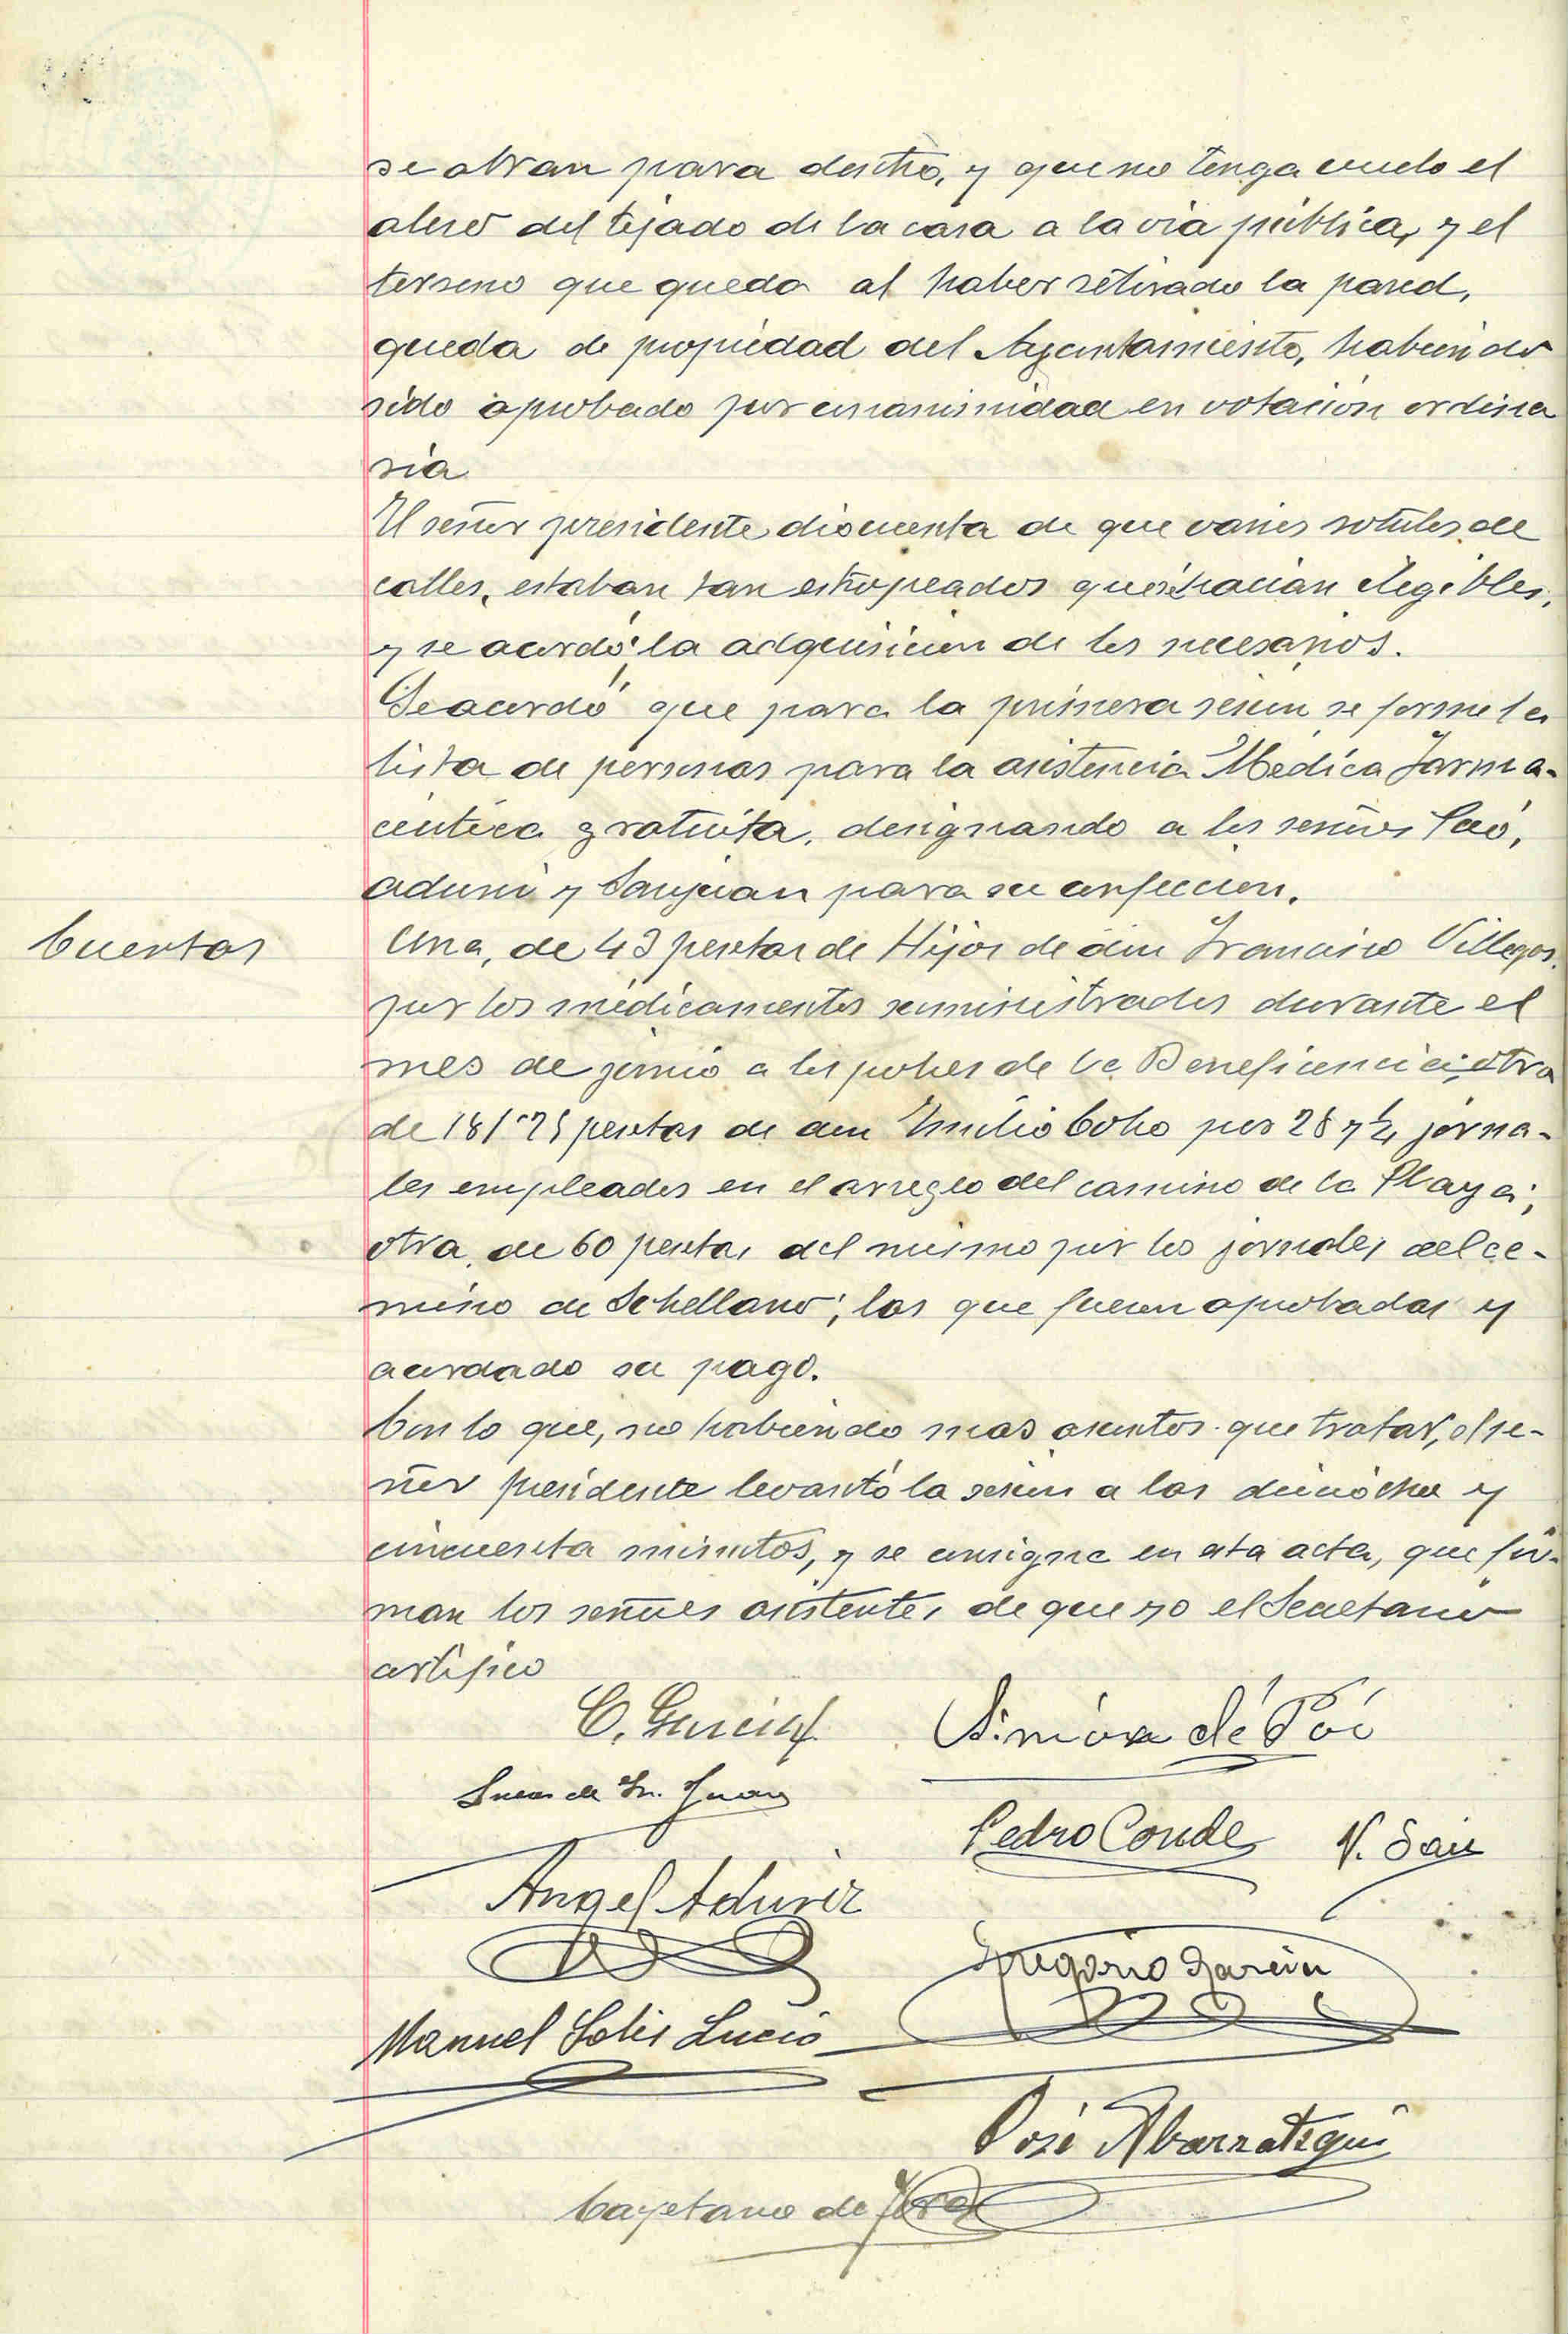 se abran para dentro, y que no tenga vuelo el
alero del tejado de la casa a la via pública, y el
terreno que queda al haber retirado la pared,
queda de propiedad del Ayuntamiento, habiendo
sido aprobado por unanimidad en votación ordina
ria
El señor presidente dio cuenta de que varios rotulos de
calles, estaban tan estropeados que se hacian ilegibles,
y se acordó la adquisicion de los necesarios.
Se acordó que para la primera sesion se forme la
lista de personas para la asistencia Medica Farma-
ceutica gratuita, designando a los señores Poó,
Aduriz y Sanjuan para su confeccion.
Cuentas
Una, de 43 pesetas de Hijos de don Francisco Villegas,
por los medicamentos suministrados durante el
mes de junio a los pobres de la Beneficencia; otra
de 181'25 pesetas de don Emilio Cobo por 28 y ½ jorna-
les empleados en el arreglo del camino de la Playa;
otra, de 60 pesetas del mismo por los jornales del ca-
mino de; las que fueron aprobadas y
acordado su pago.
Con lo que, no habiendo mas asuntos que tratar, el se-
ñor presidente levantó la sesion a las dieciocho y
cincuenta minutos, y se consigna en esta acta, que fir-
man los señores asistentes de que yo el Secretario
certifico
C. Garcia
Simón de Poó
Lucas de Sn. Juan
Pedro Conde
V. Saiz
Angel Aduriz
Gregorio Garcia
Manuel Solis Lucio
José Abarrategui
Cayetano de